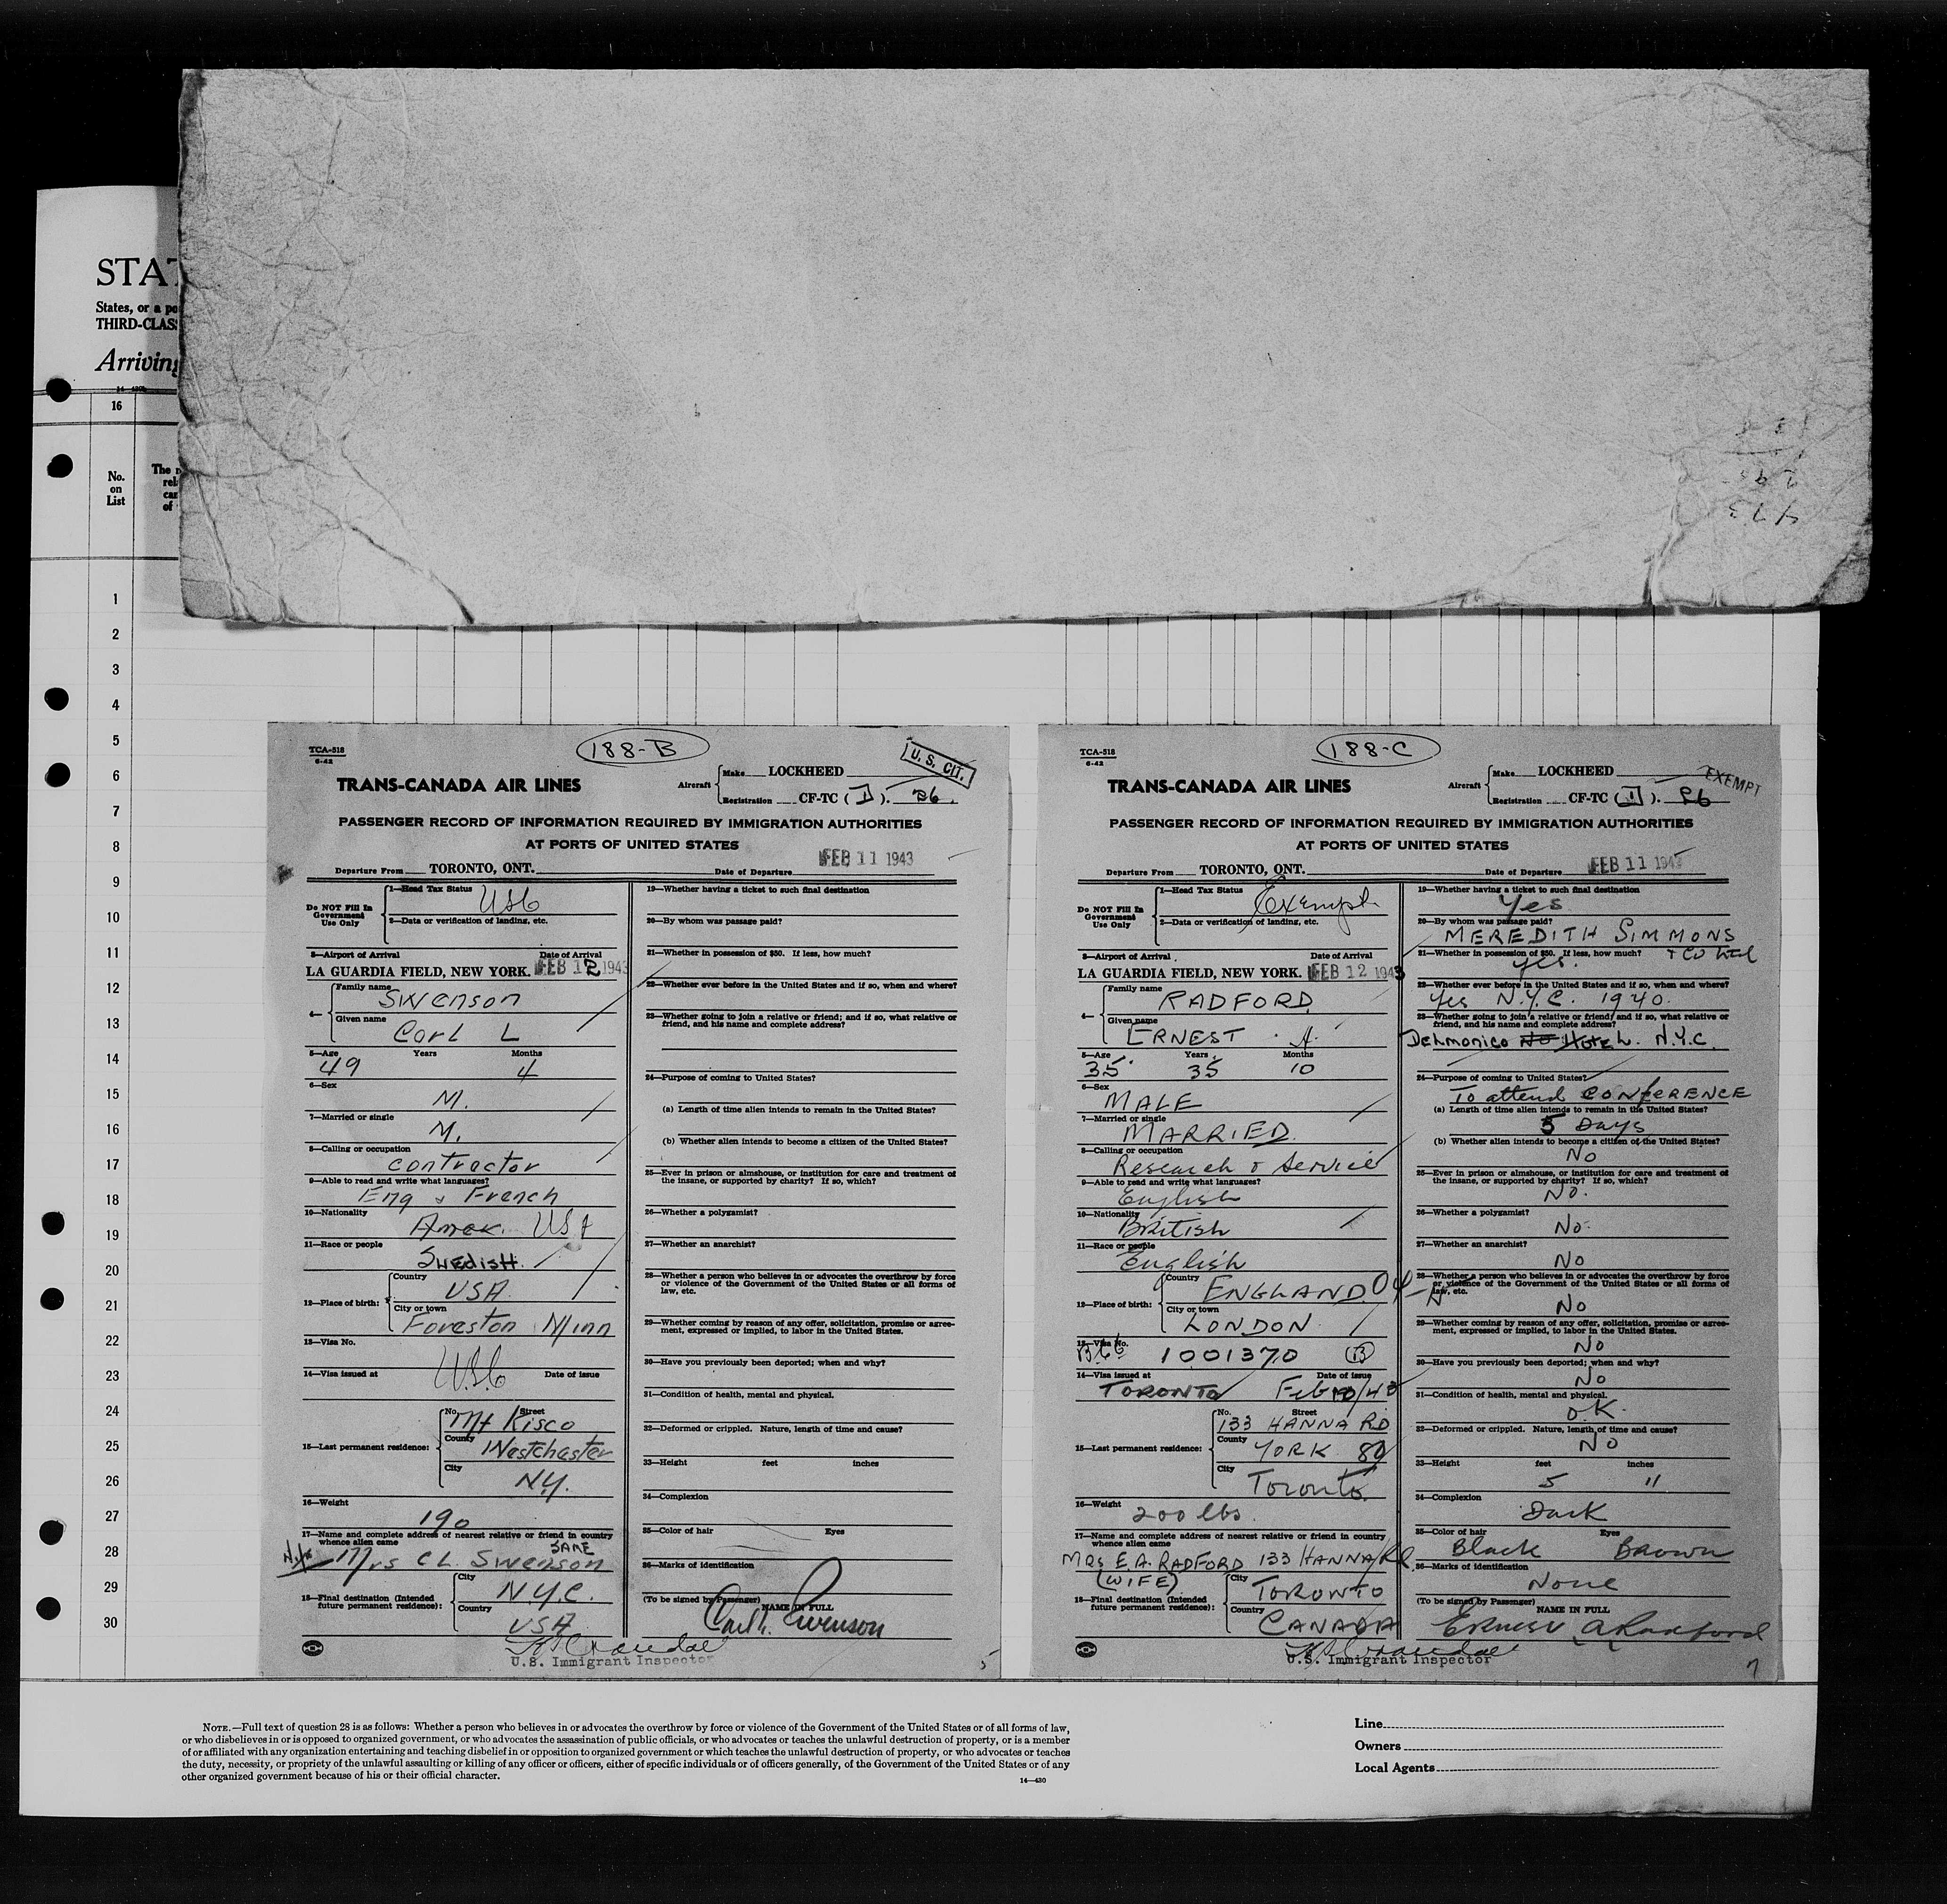 STAT
States, or a po
THIRD-CLAS
Arriving
16
No.
on
List
The
rel
can
of
473
1
2
3
4
5
6
7
8
9
10
11
12
13
14
15
16
17
18
19
20
21
22
23
24
25
26
27
28
29
30
TCA-518
6-42
188-B
U. S. CIT.
TRANS-CANADA AIR LINES
Aircraft
Make LOCKHEED
Registration CF-TC (I). 26.
PASSENGER RECORD OF INFORMATION REQUIRED BY IMMIGRATION AUTHORITIES
AT PORTS OF UNITED STATES
FEB 11 1943
Departure From TORONTO, ONT. Date of Departure
Do NOT Fill In
Government
Use Only
1—Head Tax Status USC
2—Data or verification of landing, etc.
3—Airport of Arrival Date of Arrival
LA GUARDIA FIELD, NEW YORK. FEB 12 1943
4— Family name
Swenson
Given name
Carl L
5—Age Years Months
49 4
6—Sex
M.
7—Married or single
M.
8—Calling or occupation
contractor
9—Able to read and write what languages?
Eng & French
10—Nationality
Amer. USA
11—Race or people
Swedish
12—Place of birth:
Country
USA
City or town
Foreston Minn
13—Visa No.
14—Visa issued at Date of issue
USC
15—Last permanent residence:
No. Street
Mt Kisco
County
Westchester
City
N.Y.
16—Weight
190
17—Name and complete address of nearest relative or friend in country
whence alien came SAME
Mrs C L. Swenson
18—Final destination (Intended
future permanent residence):
City
N.Y.C.
Country
USA
U.S. Immigrant Inspector
19—Whether having a ticket to such final destination
20—By whom was passage paid?
21—Whether in possession of $50. If less, how much?
22—Whether ever before in the United States and if so, when and where?
23—Whether going to join a relative or friend; and if so, what relative or
friend, and his name and complete address?
24—Purpose of coming to United States?
(a) Length of time alien intends to remain in the United States?
(b) Whether alien intends to become a citizen of the United States?
25—Ever in prison or almshouse, or institution for care and treatment of
the insane, or supported by charity? If so, which?
26—Whether a polygamist?
27—Whether an anarchist?
28—Whether a person who believes in or advocates the overthrow by force
or violence of the Government of the United States or all forms of
law, etc.
29—Whether coming by reason of any offer, solicitation, promise or agree-
ment, expressed or implied, to labor in the United States.
30—Have you previously been deported; when and why?
31—Condition of health, mental and physical.
32—Deformed or crippled. Nature, length of time and cause?
33—Height feet inches
34—Complexion
35—Color of hair Eyes
36—Marks of identification
(To be signed by Passenger)
NAME IN FULL
Carl L. Swenson
5
TCA-518
6-42
188-C
EXEMPT
TRANS-CANADA AIR LINES
Aircraft
Make LOCKHEED
Registration CF-TC (I). 26
PASSENGER RECORD OF INFORMATION REQUIRED BY IMMIGRATION AUTHORITIES
AT PORTS OF UNITED STATES
FEB 11 1943
Departure From TORONTO, ONT. Date of Departure
Do NOT Fill In
Government
Use Only
1—Head Tax Status Exempt
2—Data or verification of landing, etc.
3—Airport of Arrival Date of Arrival
LA GUARDIA FIELD, NEW YORK. FEB 12 1943
4— Family name
RADFORD
Given name
ERNEST A.
5—Age Years Months
35 35 10
6—Sex
MALE
7—Married or single
MARRIED
8—Calling or occupation
Research & Service
9—Able to read and write what languages?
English
10—Nationality
British
11—Race or people
English
12—Place of birth:
Country
ENGLAND 04
City or town
LONDON
13—Visa No.
1001370 (13)
14—Visa issued at Date of issue
TORONTO Feb 10/43
15—Last permanent residence:
No. Street
133 HANNA RD
County
YORK 80
City
Toronto
16—Weight
200 lbs.
17—Name and complete address of nearest relative or friend in country
whence alien came
MRS E.A. RADFORD 133 HANNA Rd
(WIFE)
18—Final destination (Intended
future permanent residence):
City
TORONTO
Country
CANADA
U.S. Immigrant Inspector
19—Whether having a ticket to such final destination
Yes
20—By whom was passage paid?
MEREDITH SIMMONS
21—Whether in possession of $50. If less, how much? & Co Ltd
yes.
22—Whether ever before in the United States and if so, when and where?
Yes N.Y.C. 1940.
23—Whether going to join a relative or friend; and if so, what relative or
friend, and his name and complete address?
Delmonico No Hotel. N.Y.C.
24—Purpose of coming to United States?
To attend CONFERENCE
(a) Length of time alien intends to remain in the United States?
5 Days
(b) Whether alien intends to become a citizen of the United States?
No
25—Ever in prison or almshouse, or institution for care and treatment of
the insane, or supported by charity? If so, which?
No.
26—Whether a polygamist?
No
27—Whether an anarchist?
No
28—Whether a person who believes in or advocates the overthrow by force
or violence of the Government of the United States or all forms of
law, etc.
No
29—Whether coming by reason of any offer, solicitation, promise or agree-
ment, expressed or implied, to labor in the United States.
No
30—Have you previously been deported; when and why?
No
31—Condition of health, mental and physical.
O.K.
32—Deformed or crippled. Nature, length of time and cause?
No
33—Height feet inches
5 11
34—Complexion
Dark
35—Color of hair Eyes
Black Brown
36—Marks of identification
None
(To be signed by Passenger)
NAME IN FULL
Ernest A Radford
7
NOTE.—Full text of question 28 is as follows: Whether a person who believes in or advocates the overthrow by force or violence of the Government of the United States or of all forms of law,
or who disbelieves in or is opposed to organized government, or who advocates the assassination of public officials, or who advocates or teaches the unlawful destruction of property, or is a member
of or affiliated with any organization entertaining and teaching disbelief in or opposition to organized government or which teaches the unlawful destruction of property, or who advocates or teaches
the duty, necessity, or propriety of the unlawful assaulting or killing of any officer or officers, either of specific individuals or of officers generally, of the Government of the United States or of any
other organized government because of his or their official character.
14—430
Line
Owners
Local Agents